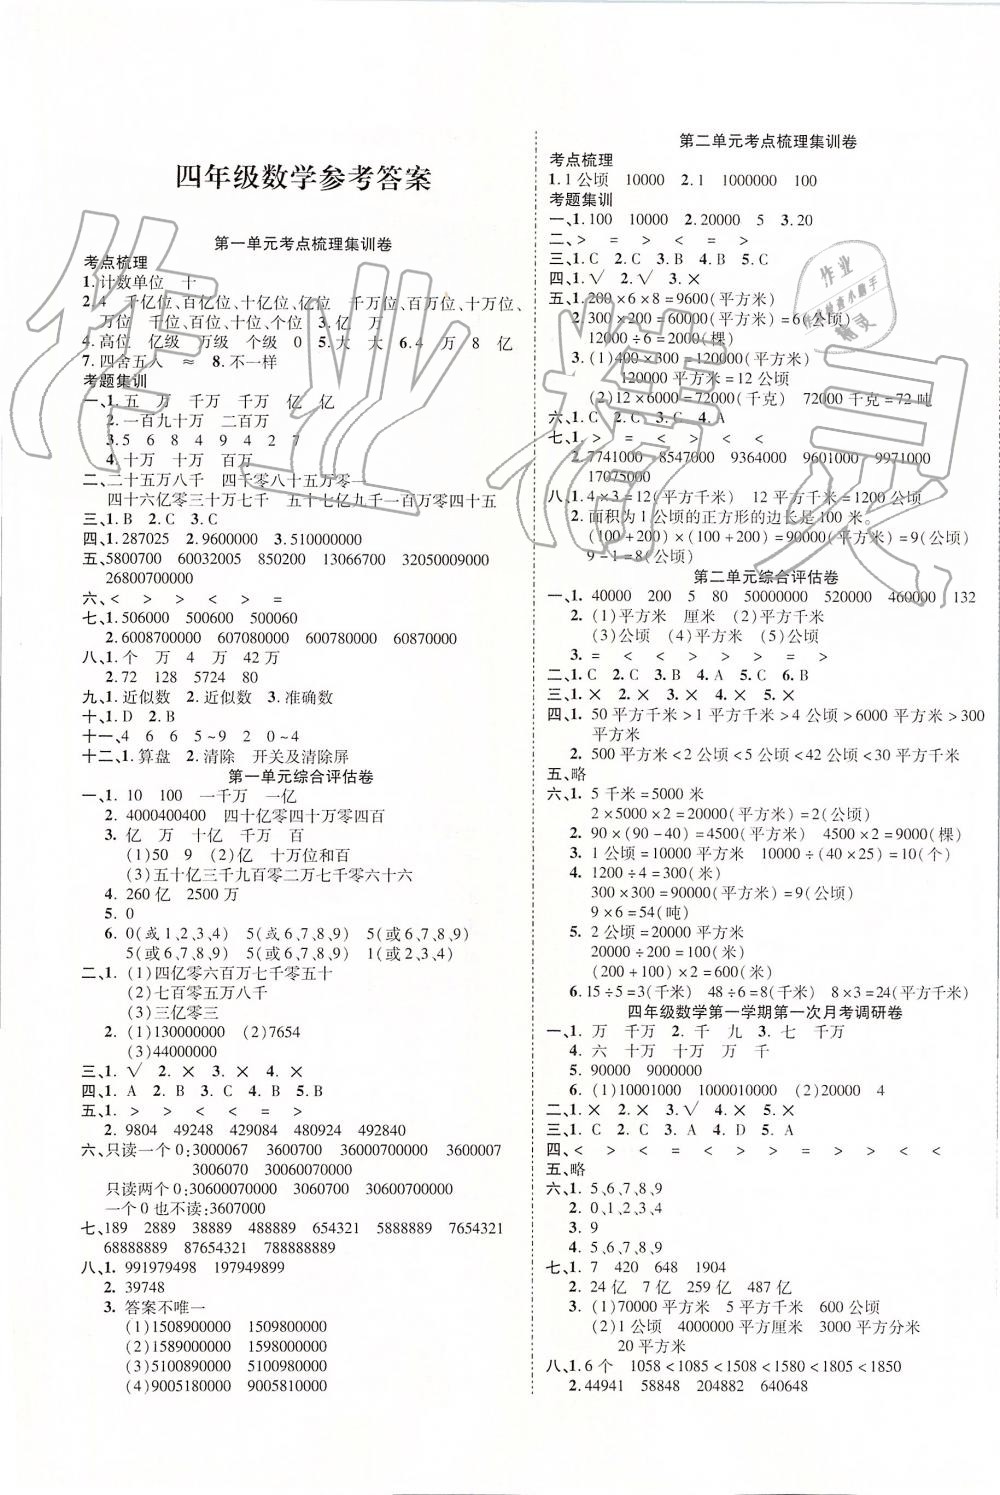 四年级数学参考答案
第一单元考点梳理集训卷
考点梳理
1.计数单位 十
2.4 千亿位、百亿位、十亿位、亿位 千万位、百万位、十万位、
万位 千位、百位、十位、个位 3.亿 万
4.高位 亿级 万级 个级 0 5.大 大 6.4 万 8 亿
7.四舍五人 ≈ 8.不一样
考题集训
一、1.五 万 千万 千万 亿 亿
2.一百九十万 二百万
3.5 6 8 4 9 4 2 7
4.十万 十万 百万
二、二十五万八千 四千零八十五万零一
四十六亿零三十万七千 五十七亿九千一百万四千四百四十五
三、1.B 2.C 3.C
四、1.287025 2.9600000 3.510000000
五、5800700 60032005 850200 13066700 32050009000
26800700000
六、< > < > < > =
七、1.506000 500600 500060
2.6008700000 607080000 600780000 60870000
八、1.个 万 4 万 42 万
2.72 128 5724 80
九、1.近似数 2.近似数 3.准确数
十、1.D 2.B
十一、4 6 6 5~9 2 0~4
十二、1.算盘 2.清除 开关及清除屏
第一单元综合评估卷
一、1. 10 100 一千万 一亿
2. 4000400400 四十亿零四十万零四百
3. 亿 万 十亿 千万 百
(1)50 9 (2)亿 十万位和百
(3)五十亿三千九百零二万七千零六十六
4. 260 亿 2500 万
5. 0
6. 0(或1、2、3、4) 5(或6、7、8、9) 5(或6、7、8、9)
5(或6、7、8、9) 5(或6、7、8、9) 1(或2、3、4)
二、1. (1)四亿零六百万七千零五十
(2)七百零五万八千
(3)三亿零三
2. (1)130000000 (2)7654
(3)44000000
三、1. √ 2. × 3. × 4. ×
四、1. A 2. B 3. C 4. B 5. B
五、1. > > < < = >
2. 9804 49248 429084 480924 9840000
六、只读一个0:3000067 3600700 3600700000 3600007
3006070 30060070000
只读两个0:30600070000 3060700 30600700000
一个0也不读:3607000
七、189 2889 38889 488889 654321 5888889 7654321
68888889 87654321 788888889
八、1. 991979498 197949899
2. 39748
3. 答案不唯一
(1)1508900000 1509800000
(2)1589000000 1598000000
(3)5100890000 5100980000
(4)9005180000 9005810000
第二单元考点梳理集训卷
考点梳理
1.1公顷 10000 2.1 1000000 100
考题集训
一、1.100 10000 2.20000 5 3.20
二、> = > < > <
三、1.C 2.C 3.B 4.B 5.C
四、1.√ 2.√ 3.×
五、1.200×6×8=9600(平方米)
2.300×200=60000(平方米)=6(公顷)
12000÷6=2000(棵)
3.(1)400×300=120000(平方米)
120000平方米=12公顷
(2)12×6000=72000(千克) 72000千克=72吨
六、1.C 2.C 3.C 4.A
七、1.> = < > > =
2.7741000 8547000 9364000 9601000 9971000
17075000
八、1.4×3=12(平方千米) 12平方千米=1200公顷
2.面积为1公顷的正方形的边长是100米。
(100+200)×(100+200)=90000(平方米)=9(公顷)
9-1=8(公顷)
第二单元综合评估卷
一、1. 40000 200 5 80 50000000 520000 460000 132
2. (1)平方米 厘米 (2)平方千米
(3)公顷 (4)平方米 (5)公顷
3. = < < > > > = >
二、1.C 2.C 3.B 4.A 5.C 6.B
三、1.× 2.× 3.× 4.× 5.×
四、1. 50平方千米>1平方千米>4公顷>6000平方米>300
平方米
2. 500平方米<2公顷<5公顷<42公顷<30平方千米
五、略
六、1. 5千米=5000米
2×5000×2=20000(平方米)=2(公顷)
2. 90×(90-40)=4500(平方米) 4500×2=9000(棵)
3. 1公顷=10000平方米 10000÷(40×25)=10(个)
4. 1200÷4=300(米)
300×300=90000(平方米)=9(公顷)
9×6=54(吨)
5. 2公顷=20000平方米
20000÷200=100(米)
(200+100)×2=600(米)
6. 15÷5=3(千米) 48÷6=8(千米) 8×3=24(平方千米)
四年级数学第一学期第一次月考调研卷
一、1. 万 千万 2. 千 九 3. 七 千万
4. 六 十万 十万 万 千
5. 90000 9000000
6. (1)10001000 1000010000 (2)20000 4
二、1.× 2.× 3.√ 4.× 5.×
三、1. C 2. C 3. A 4. D 5. A
四、< > < = < < > = > > < <
五、略
六、1. 5、6、7、8、9
2. 0、1、2、3、4
3. 9
4. 5、6、7、8、9
七、1. 7 420 648 1904
2. 24亿 7亿 259亿 487亿
3. (1)70000平方米 5平方千米 600公顷
(2)1公顷 4000000平方厘米 3000平方分米
20平方米
八、1.6个 1058<1085<1508<1580<1805<1850
2.44941 58848 204882 640648
作业精灵
作业
精灵